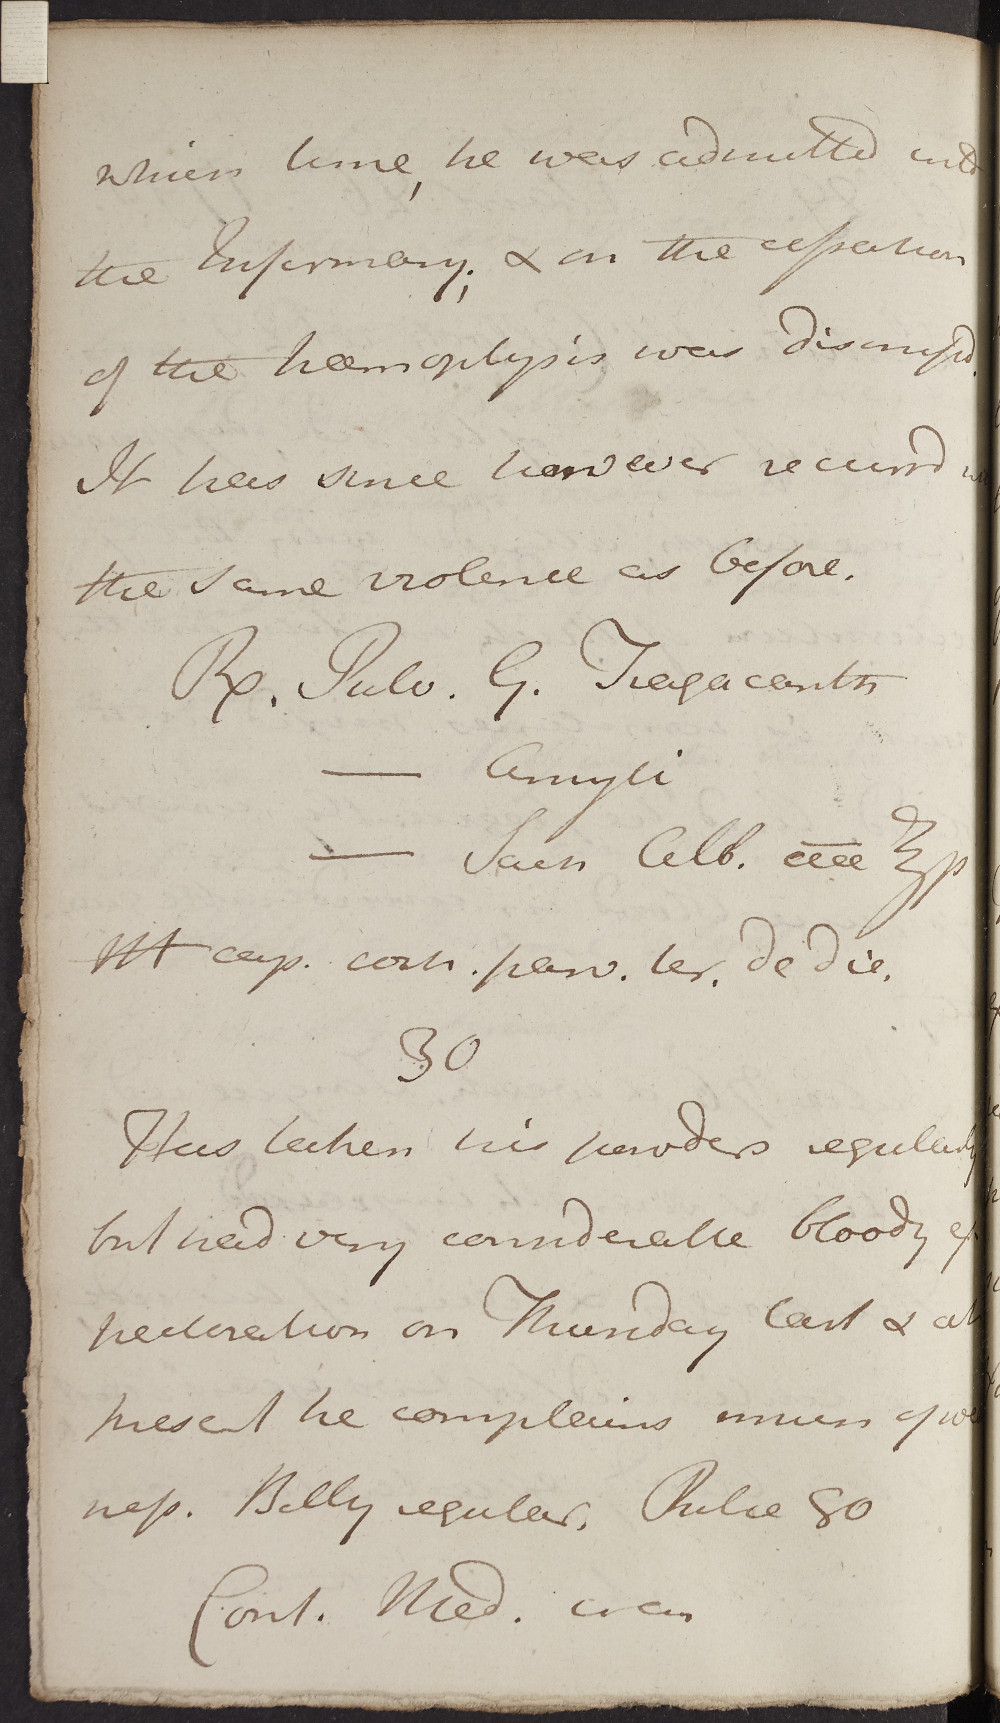 which time, he was admitted into
the Infirmary; & on the cessation
of the hæmoptysis was dismissd.
It has since however recurrd
the same violence as before.
Rx. Pulv. G. Tragacanth
— Amyli
— Sach Alb. aa ℥p
M cap. coch. parv. ter. de die.
30
Has taken his powders regularly
but had very considerable bloody ex
pectoration on Thursday last & at
present he complains much of
ness. Belly regular. Pulse 80
Cont. Med.